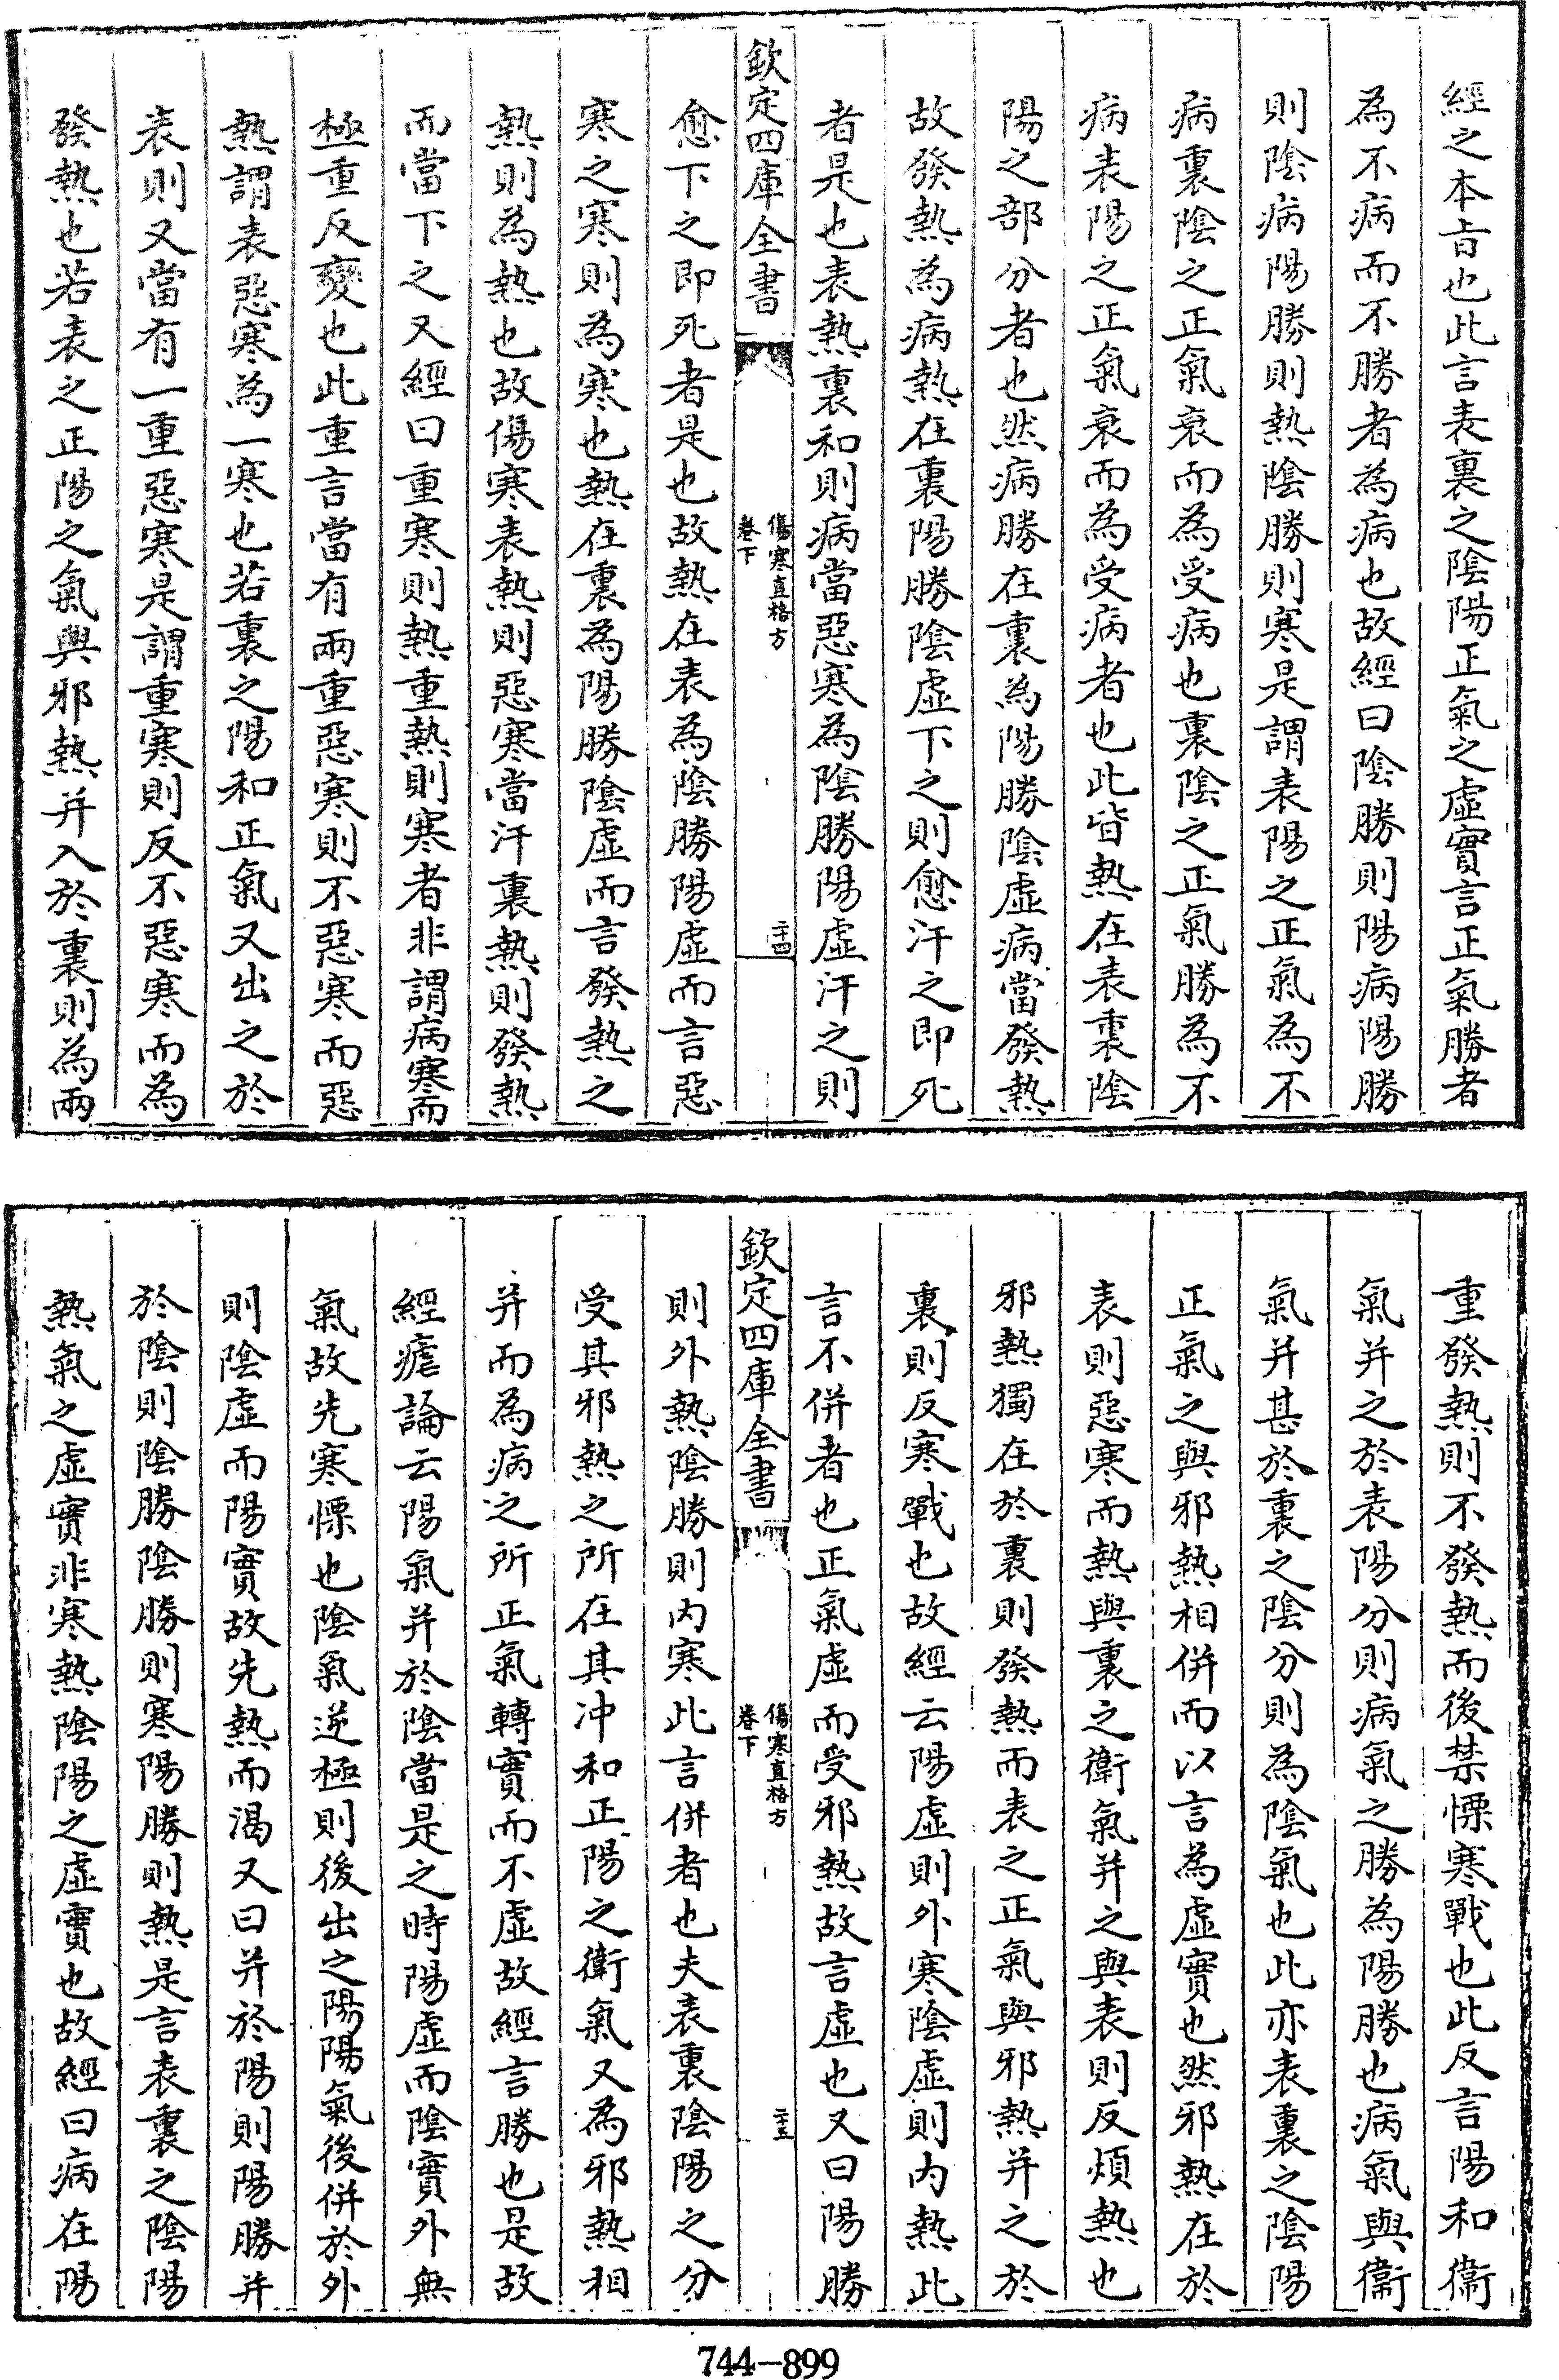 經之本旨也此言表裏之陰陽正氣之虛實言正氣勝者
為不病而不勝者為病也故經曰陰勝則陽病陽勝
則陰病陽勝則熱陰勝則寒是謂表陽之正氣為不
病裏陰之正氣衰而為受病也裏陰之正氣勝為不
病表陽之正氣衰而為受病者也此皆熱在表裏陰
陽之部分者也然病勝在裏為陽勝陰虛病當發熱
故發熱為病熱在裏陽勝陰虛下之則愈汗之即死
者是也表熱裏和則病當惡寒為陰勝陽虛汗之則
欽定四庫全書
傷寒直格方
卷下
二十四
愈下之即死者是也故熱在表為陰勝陽虛而言惡
寒之寒則為寒也熱在裏為陽勝陰虛而言發熱之
熱則為熱也故傷寒表熱則惡寒當汗裏熱則發熱
而當下之又經曰重寒則熱重熱則寒者非謂病寒而
極重反變也此重言當有兩重惡寒則不惡寒而惡
熱謂表惡寒為一寒也若裏之陽和正氣又出之於
表則又當有一重惡寒是謂重寒則反不惡寒而為
發熱也若表之正陽之氣與邪熱并入於裏則為兩
重發熱則不發熱而後禁慄寒戰也此反言陽和衛
氣并之於表陽分則病氣之勝為陽勝也病氣與衛
氣并甚於裏之陰分則為陰氣也此亦表裏之陰陽
正氣之與邪熱相併而以言為虛實也然邪熱在於
表則惡寒而熱與裏之衛氣并之與表則反煩熱也
邪熱獨在於裏則發熱而表之正氣與邪熱并之於
裏則反寒戰也故經云陽虛則外寒陰虛則內熱此
言不併者也正氣虛而受邪熱故言虛也又曰陽勝
欽定四庫全書
傷寒直格方
卷下
二十五
則外熱陰勝則內寒此言併者也夫表裏陰陽之分
受其邪熱之所在其冲和正陽之衛氣又為邪熱相
并而為病之所正氣轉實而不虛故經言勝也是故
經瘧論云陽氣并於陰當是之時陽虛而陰實外無
氣故先寒慄也陰氣逆極則後出之陽陽氣後併於外
則陰虛而陽實故先熱而渴又曰并於陽則陽勝并
於陰則陰勝陰勝則寒陽勝則熱是言表裏之陰陽
熱氣之虛實非寒熱陰陽之虛實也故經曰病在陽
744-899